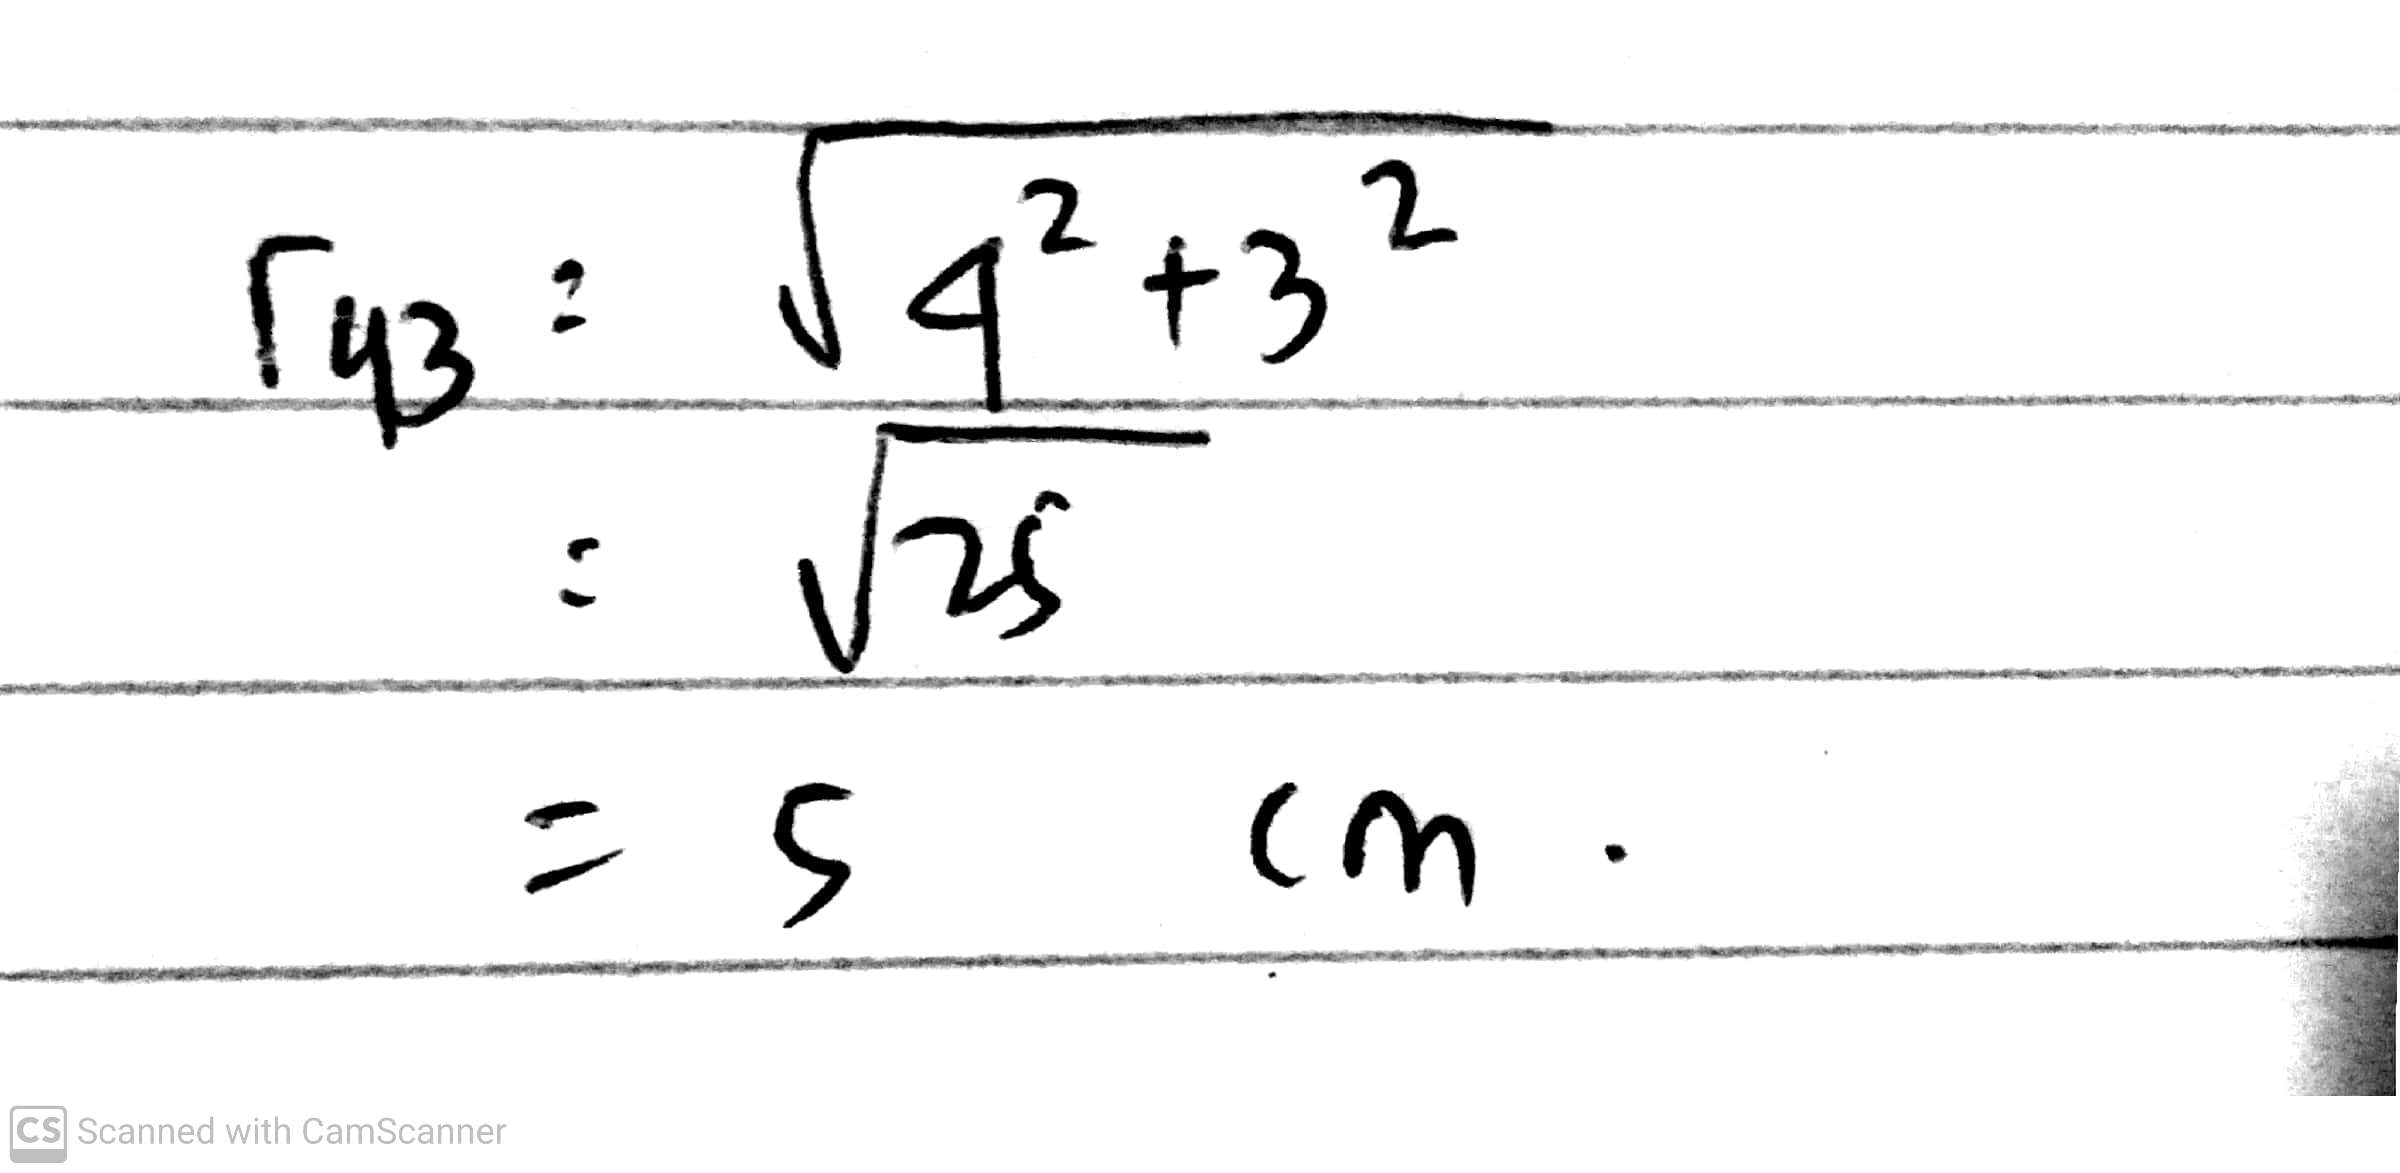 r₄₃ = √4² + 3²
= √25
= 5 cm.
CS Scanned with CamScanner